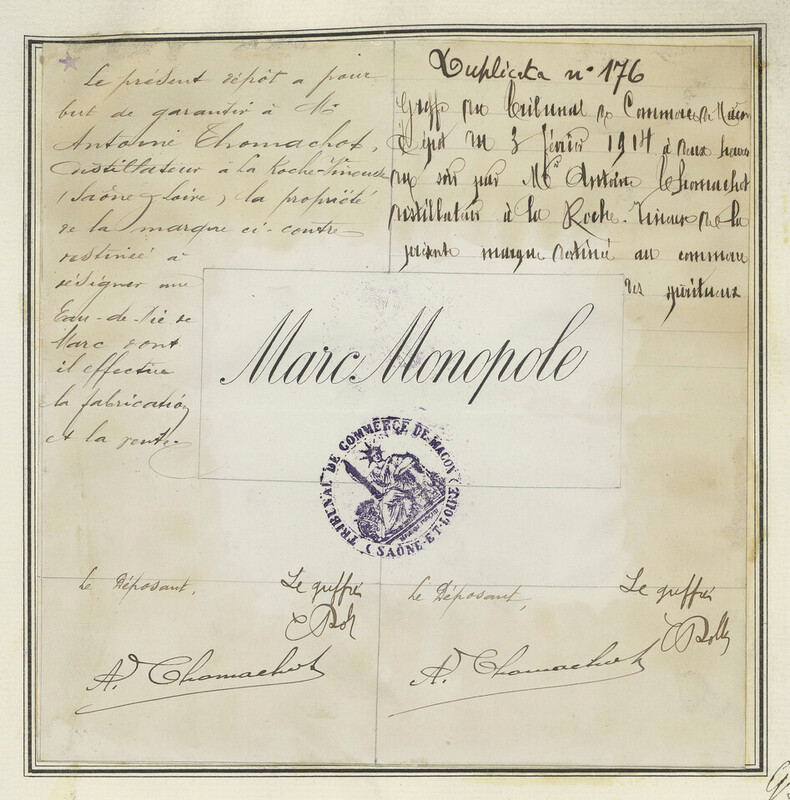 Le présent dépôt a pour
but de garantir à Mr
Antoine Thomachot,
distillateur à la Roche-Vineuse
(Saône & Loire) la propriété
de la marque ci-contre
destinée à
désigner une
Eau-de-Vie de
Marc dont
il effectue
la fabrication
et la vente
Duplicata n° 176
Greffe du Tribunal de Commerce de Mâcon
Dépôt du 3 février 1914 à deux heures
du soir par Mr Antoine Thomachot
distillateur à la Roche-Vineuse de la
présente marque destinée au commerce
des spiritueux
Marc Monopole
TRIBUNAL DE COMMERCE DE MACON
(SAÔNE-ET-LOIRE)
Le Déposant,
Le greffier
A. Thomachot
Le Déposant,
Le greffier
A. Thomachot